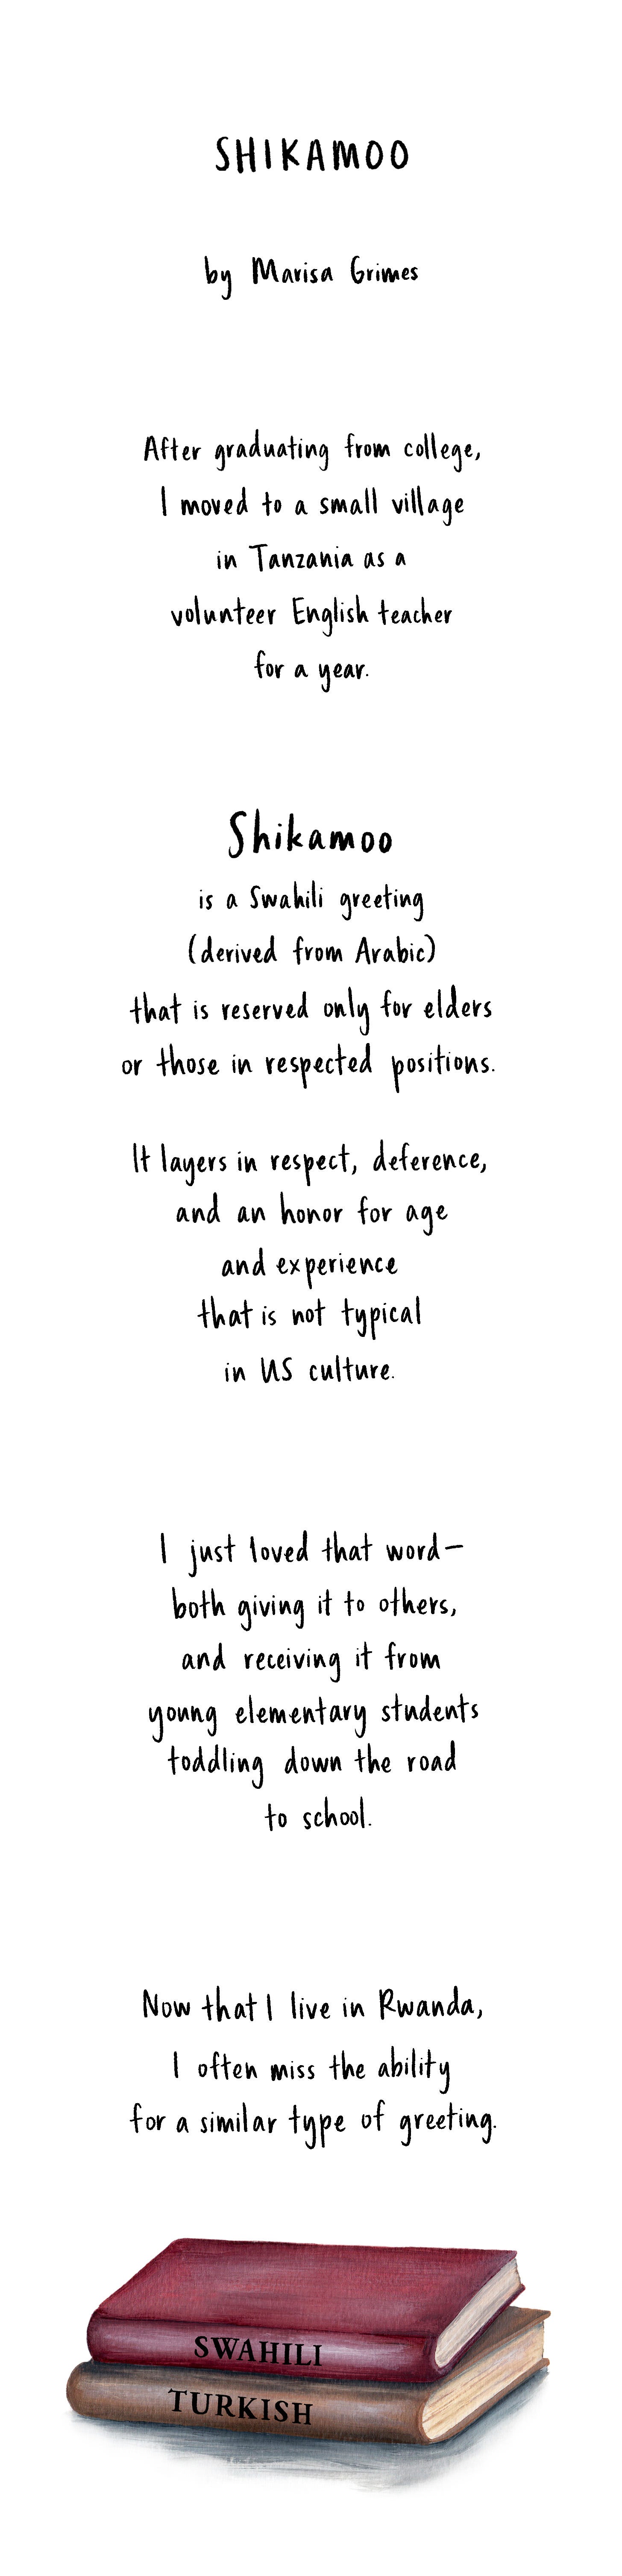 SHIKAMOO
by Marisa Grimes
After graduating from college,
I moved to a small village
in Tanzania as a
volunteer English teacher
for a year.
Shikamoo
is a Swahili greeting
(derived from Arabic)
that is reserved only for elders
or those in respected positions.
It layers in respect, deference,
and an honor for age
and experience
that is not typical
in US culture.
I just loved that word—
both giving it to others,
and receiving it from
young elementary students
toddling down the road
to school.
Now that I live in Rwanda,
I often miss the ability
for a similar type of greeting.
SWAHILI
TURKISH